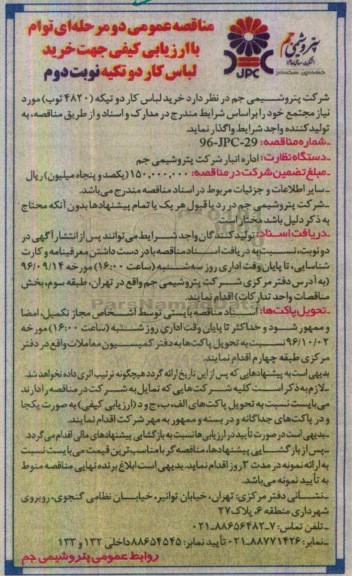 مناقصه عمومی دو مرحله‌ای توام
با ارزیابی کیفی جهت خرید
لباس کار دو تکیه نوبت دوم
پتروشیمی جم
JPC
شرکت پتروشیمی جم در نظر دارد خرید لباس کار دو تیکه (۴۸۲۰ توپ) مورد
نیاز مجتمع خود را بر اساس شرایط مندرج در مدارک و اسناد و از طریق مناقصه، به
تولید کننده واجد شرایط واگذار نماید.
-شماره مناقصه: 96-JPC-29
-دستگاه نظارت: اداره انبار شرکت پتروشیمی جم
-مبلغ تضمین شرکت در مناقصه: ۱۵۰,۰۰۰,۰۰۰ (یکصد و پنجاه میلیون) ریال
-سایر اطلاعات و جزئیات مربوط در اسناد مناقصه مندرج می‌باشد.
-شرکت پتروشیمی جم در رد یا قبول هر یک یا تمام پیشنهادها بدون آنکه محتاج
به ذکر دلیل باشد مختار است.
-دریافت اسناد: تولید کنندگان واجد شرایط می‌توانند پس از انتشار آگهی در
دو نوبت، نسبت به دریافت اسناد مناقصه با در دست داشتن معرفینامه و کارت
شناسایی، تا پایان وقت اداری روز سه‌شنبه (ساعت ۱۶:۰۰) مورخه ۹۶/۰۹/۱۴
(به آدرس دفتر مرکزی شرکت پتروشیمی جم واقع در تهران، طبقه سوم، بخش
مناقصات واحد تدارکات) اقدام نمایند.
-تحویل پاکت‌ها: اسناد مناقصه بایستی توسط اشخاص مجاز تکمیل، امضا
و ممهور شود و حداکثر تا پایان وقت اداری روز شنبه (ساعت ۱۶:۰۰) مورخه
۹۶/۱۰/۰۲ نسبت به تحویل پاکت‌ها به دفتر کمیسیون معاملات واقع در دفتر
مرکزی طبقه چهارم اقدام نمایند.
بدیهی است به پیشنهادهایی که پس از این تاریخ ارائه گردد هیچگونه ترتیب اثری داده نخواهد شد.
-لازم به ذکر است کلیه شرکت‌هایی که تمایل به شرکت در مناقصه را دارند
می‌بایست نسبت به تحویل پاکت‌های الف، ب، ج و د (ارزیابی کیفی) به صورت یکجا
و در پاکت‌های جداگانه و در بسته و ممهور به مهر شرکت اقدام نمایند.
-بدیهی است در صورت تأیید در ارزیابی‌ها نسبت به بازگشایی پیشنهادهای مالی اقدام می‌گردد.
-پس از بازگشایی پیشنهادها، مناقصه‌گر با مناسب‌ترین قیمت می‌بایست نسبت
به ارائه نمونه در مدت ۳ روز اقدام نماید. بدیهی است ابلاغ برنده نهایی مناقصه منوط
به تأیید نمونه می‌باشد.
-نشانی دفتر مرکزی: تهران، خیابان توانیر، خیابان نظامی گنجوی، روبروی
شهرداری منطقه ۶، پلاک ۲۷
-تلفن تماس: ۷-۸۸۶۵۶۴۸۲-۰۲۱
-نمابر: ۸۸۷۷۱۴۲۶-۰۲۱ تأیید نمابر: ۸۸۶۵۴۵۴۵ داخلی ۱۳۲ و ۱۳۳
روابط عمومی پتروشیمی جم